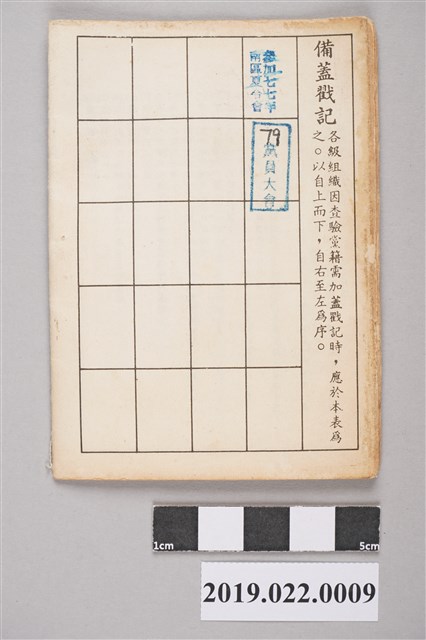 備蓋戳記
各級組織因查驗黨籍需加蓋戳記時,應於本表爲
之。以自上而下,自右至左爲序。
參加七七年
南區夏令會
79
黨員大會
1cm
5cm
2019.022.0009